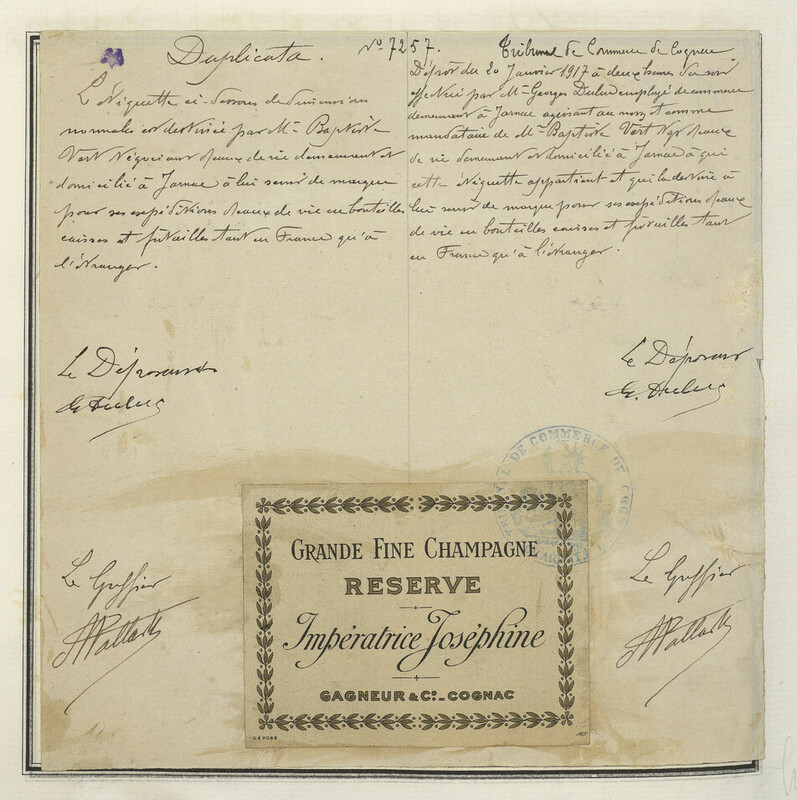 Duplicata.
No 7257.
L'étiquette ci-dessous de dimensions
normales est destinée par Mr Baptiste
Vert Négociant d'eaux de vie demeurant et
domicilié à Jarnac à lui servir de marque
pour ses expéditions d'eaux de vie en bouteilles
caisses et futailles tant en France qu'à
l'étranger.
Tribunal de Commerce de Cognac
Dépôt du 20 Janvier 1917 à deux heures du soir
effectué par Mr Georges employé de commerce
demeurant à Jarnac agissant au nom et comme
mandataire de Mr Baptiste Vert Ngt d'eaux
de vie demeurant et domicilié à Jarnac à qui
cette étiquette appartient et qui la destine à
lui servir de marque pour ses expéditions d'eaux
de vie en bouteilles caisses et futailles tant
en France qu'à l'étranger.
Le Déposant
Le Déposant
Le Greffier
Le Greffier
TRIBUNAL DE COMMERCE DE COGNAC
GRANDE FINE CHAMPAGNE
RESERVE
Impératrice Joséphine
GAGNEUR & Co. - COGNAC
DÉPOSÉ